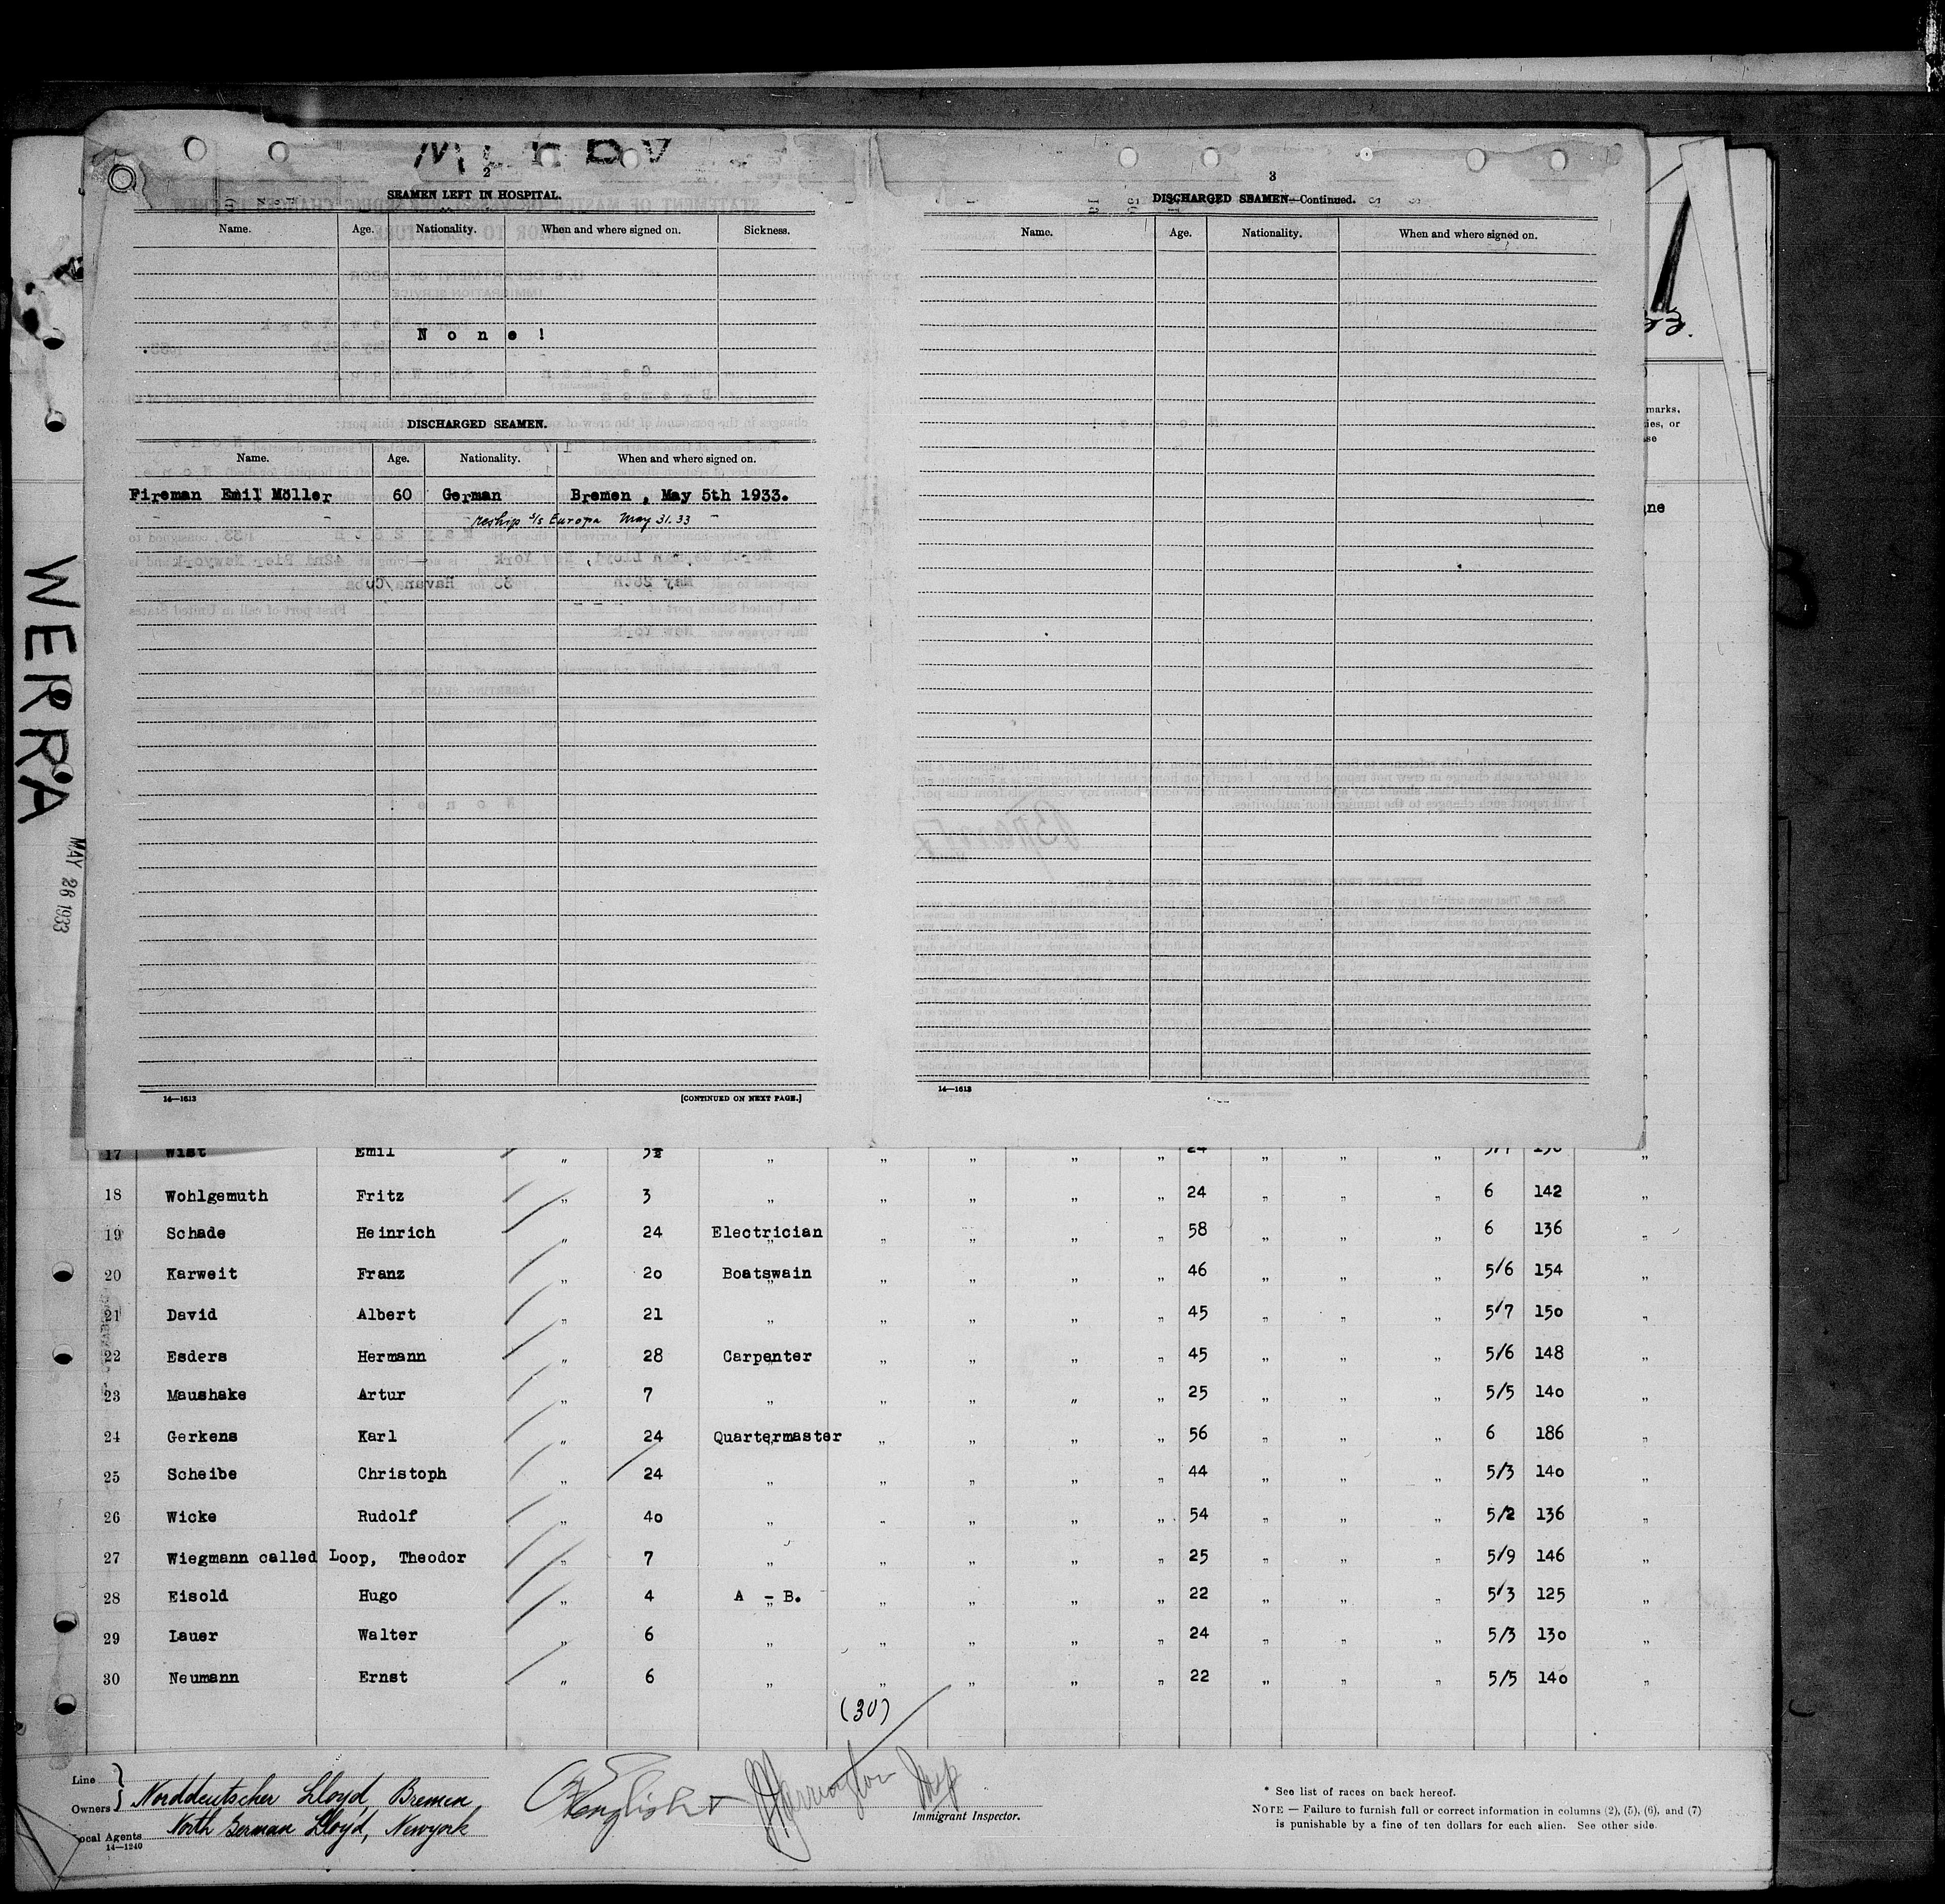 2
SEAMEN LEFT IN HOSPITAL.
Name. Age. Nationality. When and where signed on. Sickness.
None!
DISCHARGED SEAMEN.
Name. Age. Nationality. When and where signed on.
Fireman Emil Möller 60 German Bremen, May 5th 1933.
reship s/s Europa May 31.33
14—1613 [CONTINUED ON NEXT PAGE.]
3
DISCHARGED SEAMEN—Continued.
Name. Age. Nationality. When and where signed on.
14—1613
WERRA
MAY 26 1933
marks,
ies, or
se
ne
17 Wist Emil „ „ „ „ „ „ 24 „ „ „ „
18 Wohlgemuth Fritz „ 3 „ „ „ „ „ 24 „ „ „ 6 142 „
19 Schade Heinrich „ 24 Electrician „ „ „ „ 58 „ „ „ 6 136 „
20 Karweit Franz „ 20 Boatswain „ „ „ „ 46 „ „ „ 5/6 154 „
21 David Albert „ 21 „ „ „ „ „ 45 „ „ „ 5/7 150 „
22 Esders Hermann „ 28 Carpenter „ „ „ „ 45 „ „ „ 5/6 148 „
23 Maushake Artur „ 7 „ „ „ „ „ 25 „ „ „ 5/5 140 „
24 Gerkens Karl „ 24 Quartermaster „ „ „ „ 56 „ „ „ 6 186 „
25 Scheibe Christoph „ 24 „ „ „ „ „ 44 „ „ „ 5/3 140 „
26 Wicke Rudolf „ 40 „ „ „ „ „ 54 „ „ „ 5/2 136 „
27 Wiegmann called Loop, Theodor „ 7 „ „ „ „ „ 25 „ „ „ 5/9 146 „
28 Eisold Hugo „ 4 A - B. „ „ „ „ 22 „ „ „ 5/3 125 „
29 Lauer Walter „ 6 „ „ „ „ „ 24 „ „ „ 5/3 130 „
30 Neumann Ernst „ 6 „ „ „ „ „ 22 „ „ „ 5/5 140 „
(30)
Line
Owners Norddeutscher Lloyd, Bremen
ocal Agents North German Lloyd, Newyork
14—1240
Immigrant Inspector.
* See list of races on back hereof.
NOTE — Failure to furnish full or correct information in columns (2), (5), (6), and (7)
is punishable by a fine of ten dollars for each alien. See other side.